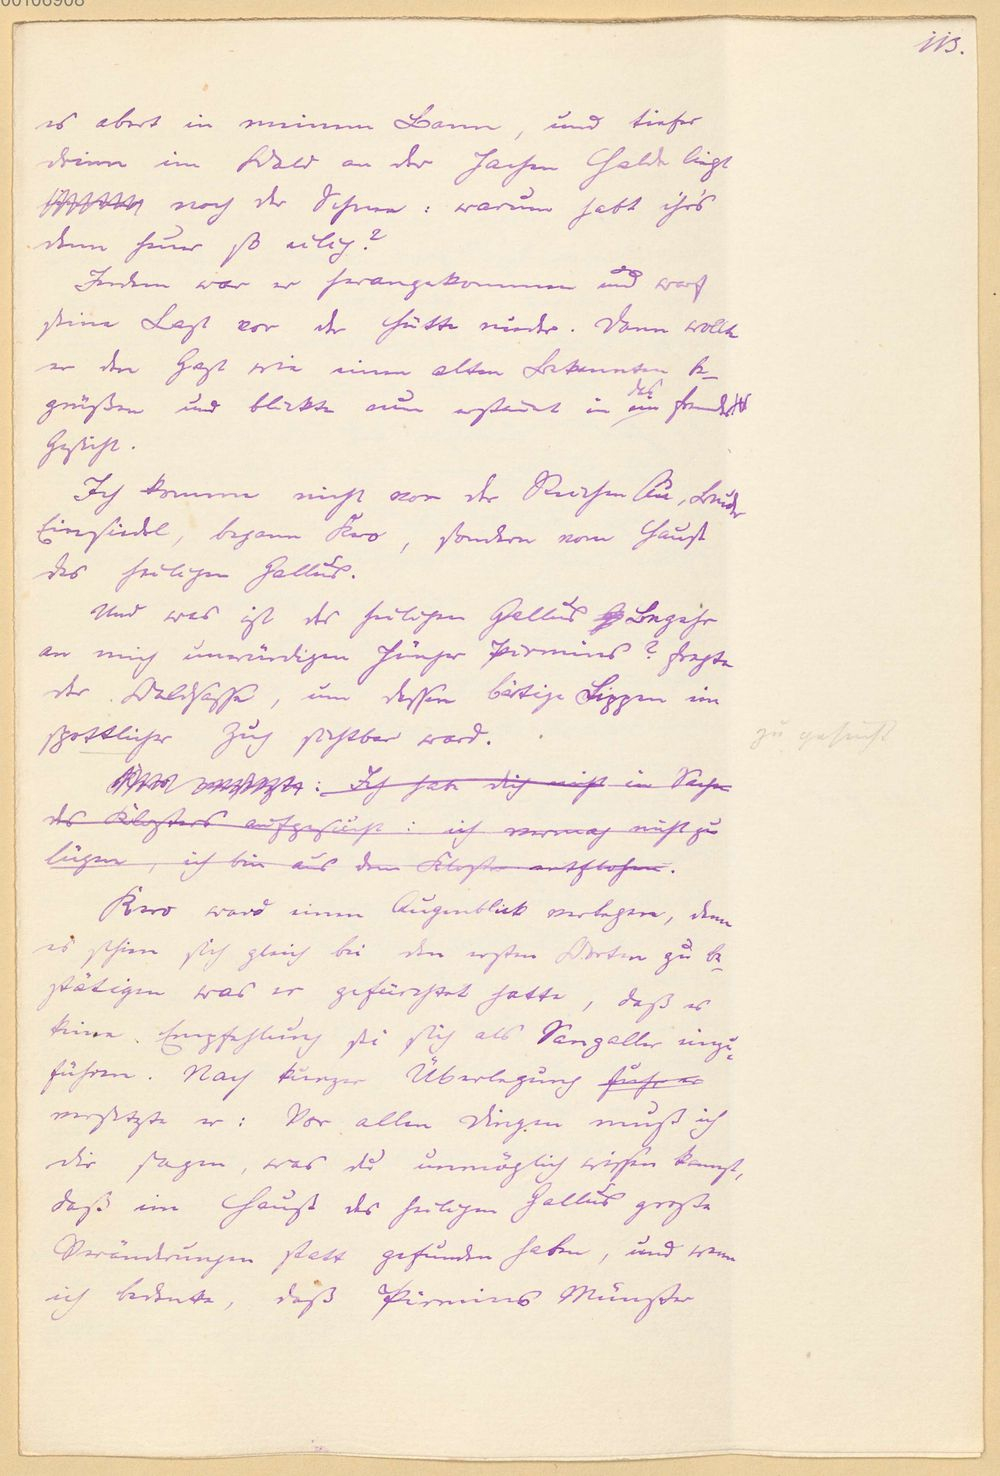 00106908
113.
es abert in meinem Bann, und tiefer
drinn im Wald an der Jachen Halde liegt
noch der Schnee: warum habt ihrs
denn heuer so eilig?
Indem war er herangekommen und warf
seine Last vor der Hütte nieder. Dann wollte
er den Gast wie einen alten Bekannten be-
des
grüßen und blickte nun erstaunt in ein fremdes
Gesicht.
Ich komme nicht von der Reichen Au, Bruder
Einsiedel, begann Kero, sondern vom Hause
des heiligen Gallus.
Und was ist des heiligen Gallus Begehr
an mich unwürdigen Jünger Pirmins? fragte
der Waldsasse, um dessen bärtige Lippen ein
spöttlicher Zug sichtbar ward.
zu gesucht
Kero versetzte: Ich habe dich nicht in Sachen
des Klosters aufgesucht: ich vermag nicht zu
lügen, ich bin aus dem Kloster entflohen.
Kero ward einen Augenblick verlegen, denn
es schien sich gleich bei den ersten Worten zu be-
stätigen was er gefürchtet hatte, daß es
keine Empfehlung sei sich als Sangaller einzu-
führen. Nach kurzer Überlegung fuhr er
versetzte er: Vor allen Dingen muß ich
dir sagen, was du unmöglich wissen kannst,
daß im Hause des heiligen Gallus große
Veränderungen statt gefunden haben, und wenn
ich bedenke, daß Pirmins Münster